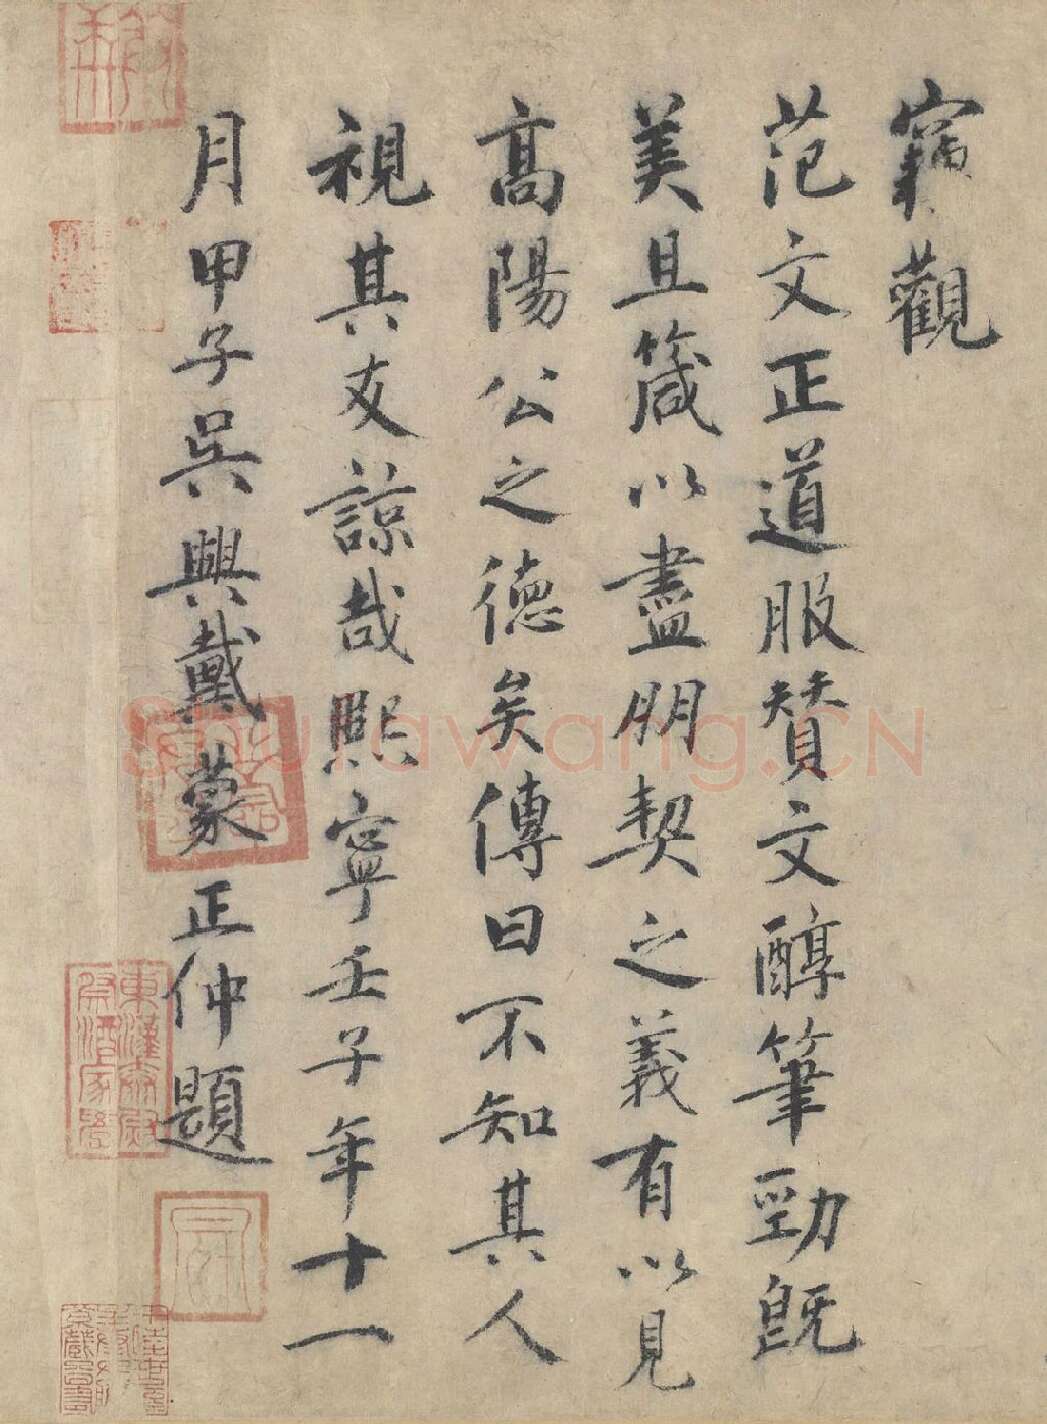 竊觀
范文正道服賛文醇筆勁旣
美且箴以盡朋契之義有以見
高陽公之德矣傳曰不知其人
視其友諒哉熙寧壬子年十一
月甲子吳興戴蒙正仲題
Shufawang.CN